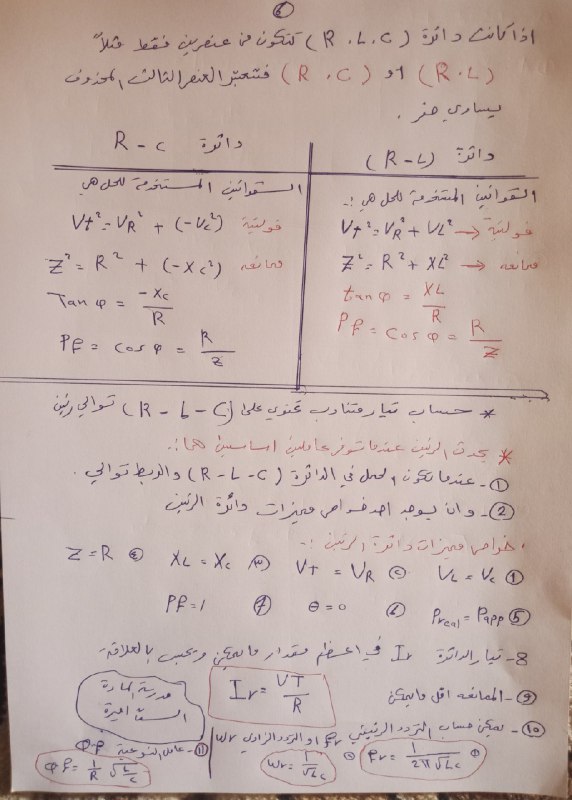 ٤
اذا كانت دائرة (R.L.C) تتكون من عنصرين فقط مثلاً
(R.L) او (R.C) فتعتبر العنصر الثالث المحذوف
يساوي صفر.
دائرة (R-L)
القوانين المستخدمة للحل هي :-
فولتية → Vt² = VR² + VL²
ممانعه → Z² = R² + XL²
tan φ = XL/R
Pf = cos φ = R/Z
دائرة R-C
القوانين المستخدمة للحل هي
Vt² = VR² + (-Vc²) فولتية
Z² = R² + (-Xc²) ممانعه
Tan φ = -Xc/R
Pf = cos φ = R/Z
* حساب تيار متناوب تحتوي على (R-L-C) توالي رنين
* يحدث الرنين عندما توفر عاملين اساسين هما :-
①- عندما تكون الحمل في الدائرة (R-L-C) والربط توالي.
②- وان يوجد احد خواص مميزات دائرة الرنين
خواص مميزات دائرة الرنين :-
① VL = Vc ② Vt = VR ③ XL = Xc ④ Z = R
⑤ Preal = Papp ⑥ θ = 0 ⑦ Pf = 1
8- تيار الدائرة Ir في اعظم مقدار ما يمكن ويحسب بالعلاقة
Ir = VT/R
⑨- الممانعه اقل ما يمكن
مدرسة المادة
⑩- يمكن حساب التردد الرنيني Fr او التردد الزاوي wr
① Fr = 1/2π√Lc
② wr = 1/√Lc
⑪- عامل النوعية φ.f
φ.f = 1/R √L/c